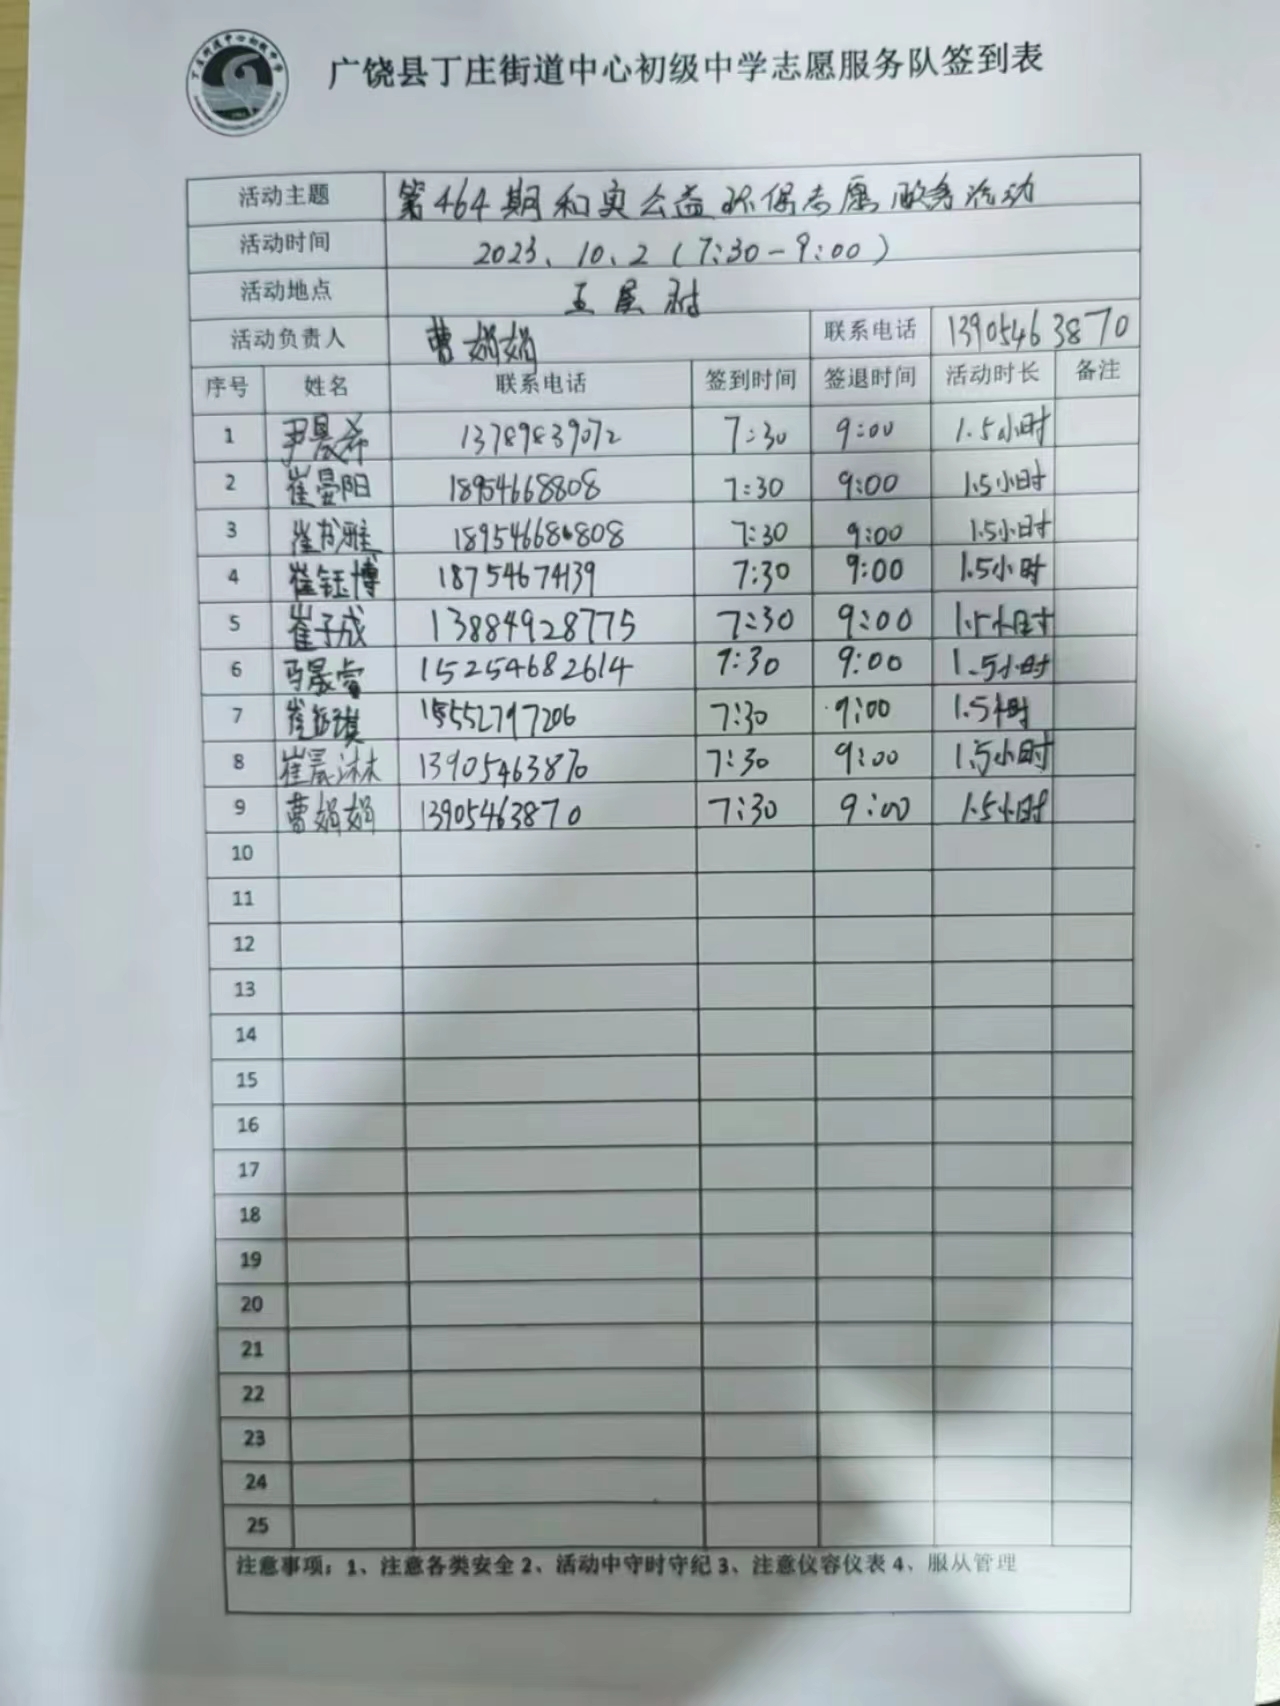 广饶县丁庄街道中心初级中学志愿服务队签到表
活动主题 第464期和实公益环保志愿服务活动
活动时间 2023、10、2（7:30-9:00）
活动地点 五星村
活动负责人 曹娟娟 联系电话 13905463870
序号 姓名 联系电话 签到时间 签退时间 活动时长 备注
1 尹晨希 13789839072 7:30 9:00 1.5小时
2 崔晏阳 18954668808 7:30 9:00 1.5小时
3 崔书雅 18954668808 7:30 9:00 1.5小时
4 崔钰博 18754674139 7:30 9:00 1.5小时
5 崔子成 13884928775 7:30 9:00 1.5小时
6 15254682614 7:30 9:00 1.5小时
7 15552797206 7:30 9:00 1.5小时
8 崔晨沐 13905463870 7:30 9:00 1.5小时
9 曹娟娟 13905463870 7:30 9:00 1.5小时
10
11
12
13
14
15
16
17
18
19
20
21
22
23
24
25
注意事项：1、注意各类安全 2、活动中守时守纪 3、注意仪容仪表 4、服从管理